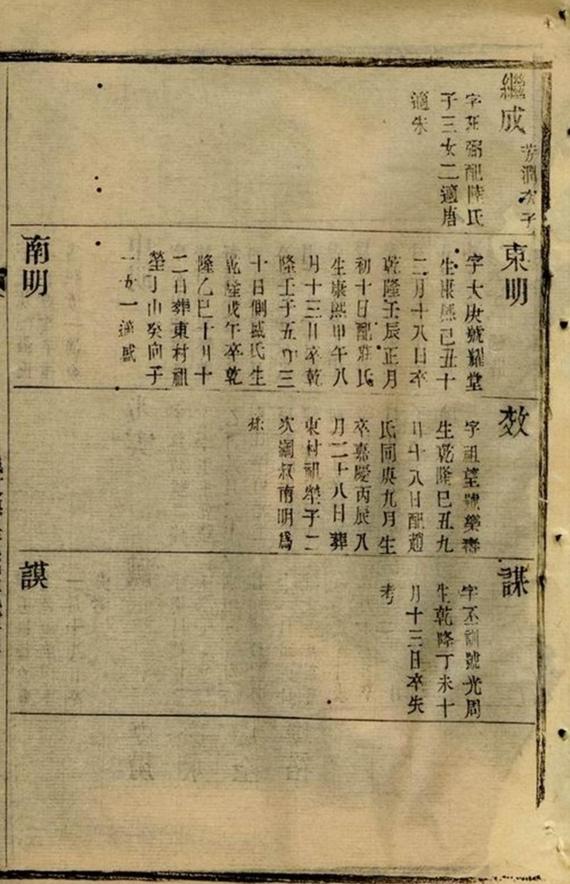 繼成
芳潤次子
字廷弼配陸氏
子三女二適唐
適朱
東明
字大庚號耀堂
生康熙己丑十
二月十八日卒
乾隆壬辰正月
初十日配莊氏
生康熙甲午八
月十三日卒乾
隆壬子五月三
十日側戚氏生
乾隆戊午卒乾
隆乙巳十月十
二日葬東村祖
塋丁山癸向子
一女一適戚
南明
效
字祖望號樂壽
生乾隆己丑九
月十八日配趙
氏同庚九月生
卒嘉慶丙辰八
月二十八日葬
東村祖塋子二
次嗣叔南明爲
孫
謀
字丕訓號光周
生乾隆丁未十
月十三日卒失
考
謨